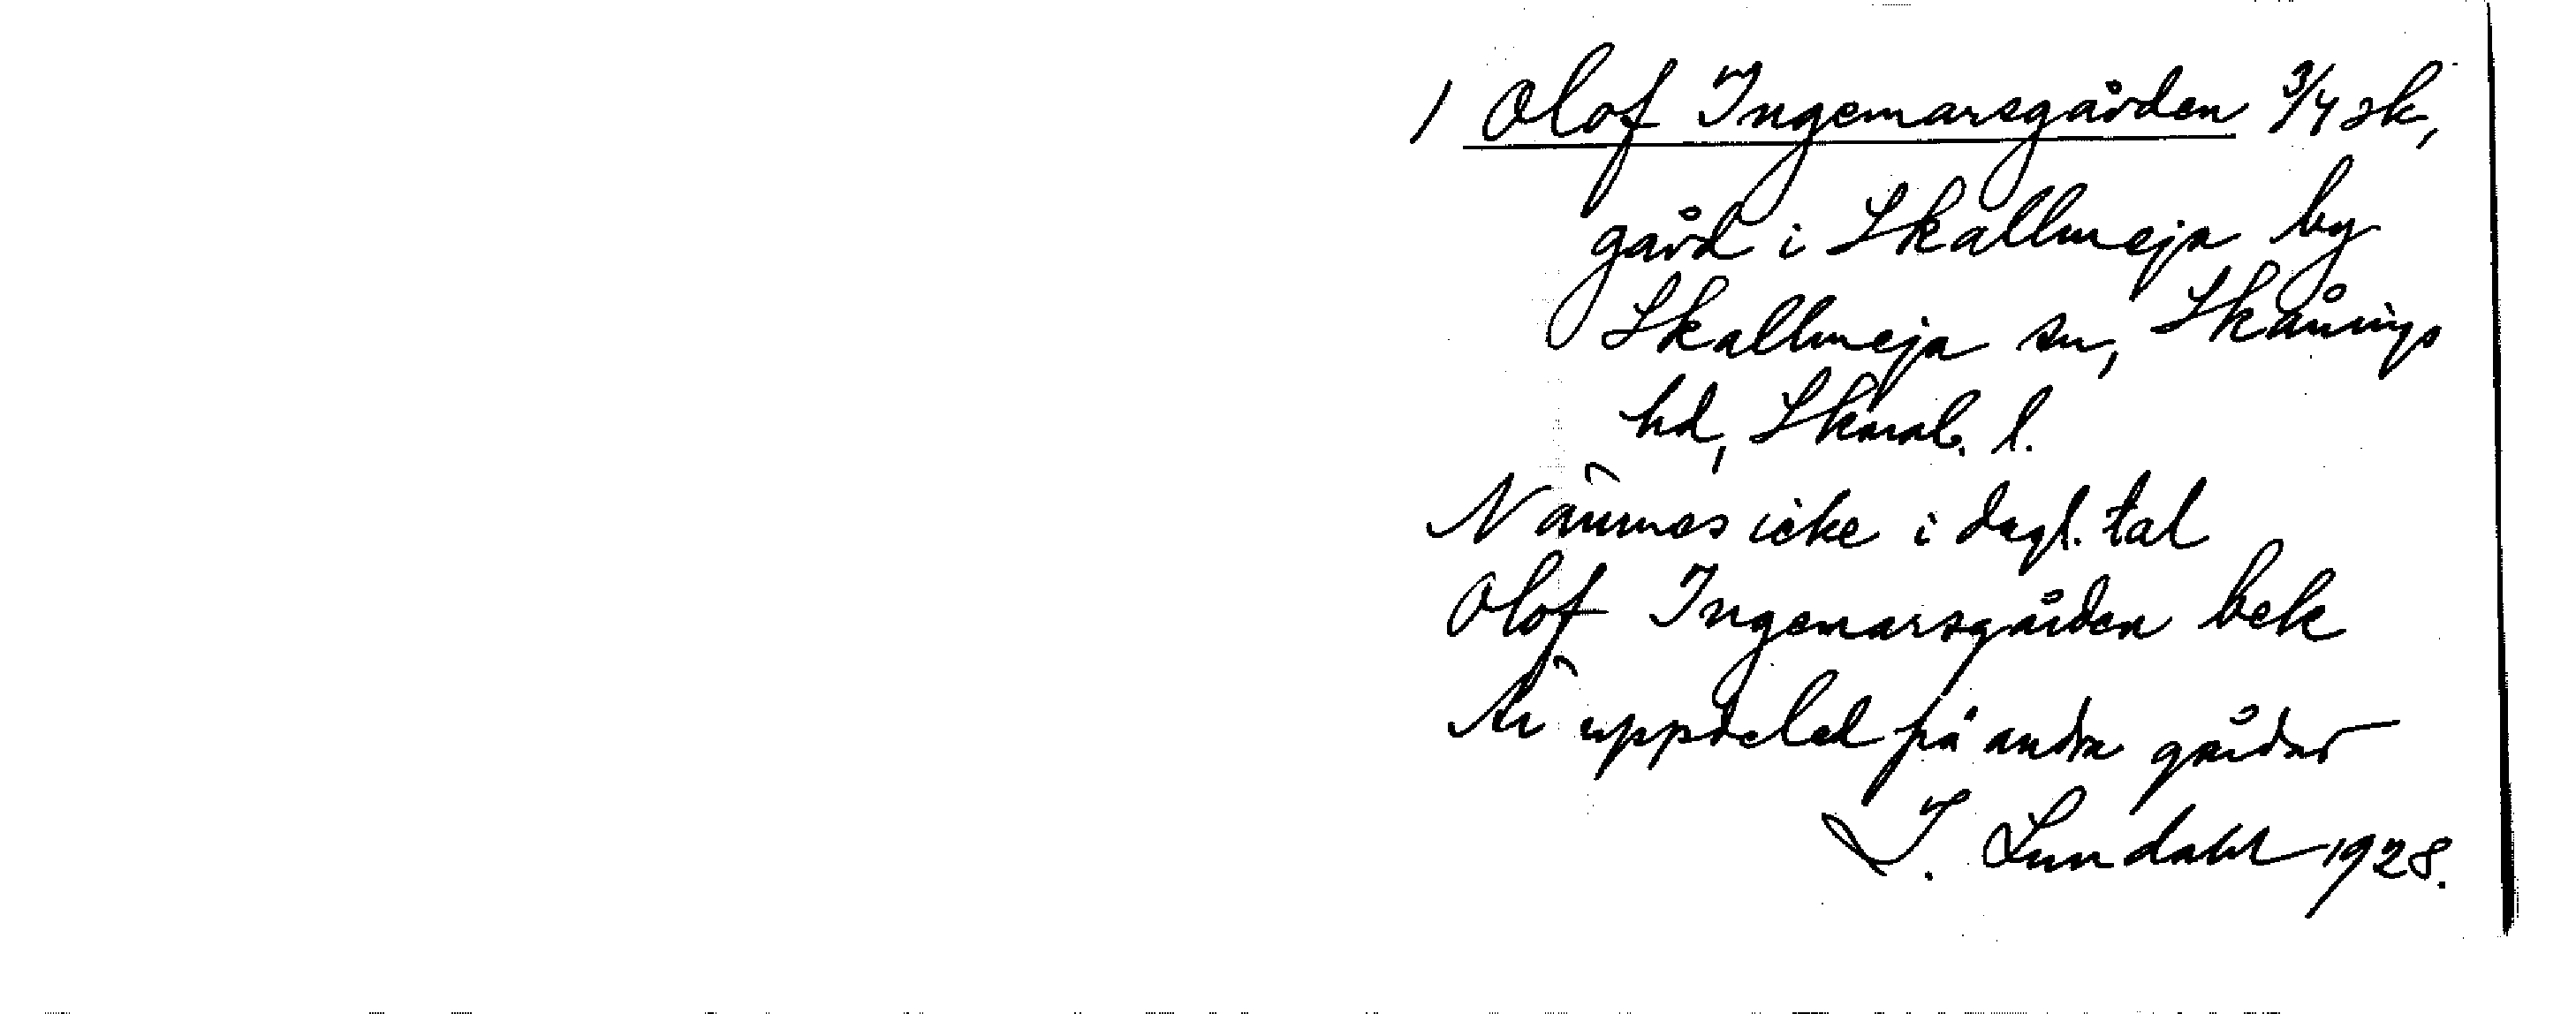 1 Olof Ingemarsgården 3/4 sk,
gård i Skallmeja by
Skallmeja sn, Skånings
hd, Skarab. l.
Nämnes icke i dagl. tal
Olof Ingemarsgården bek
Är uppdelad på andra gårdar
I. Lundahl 1928.